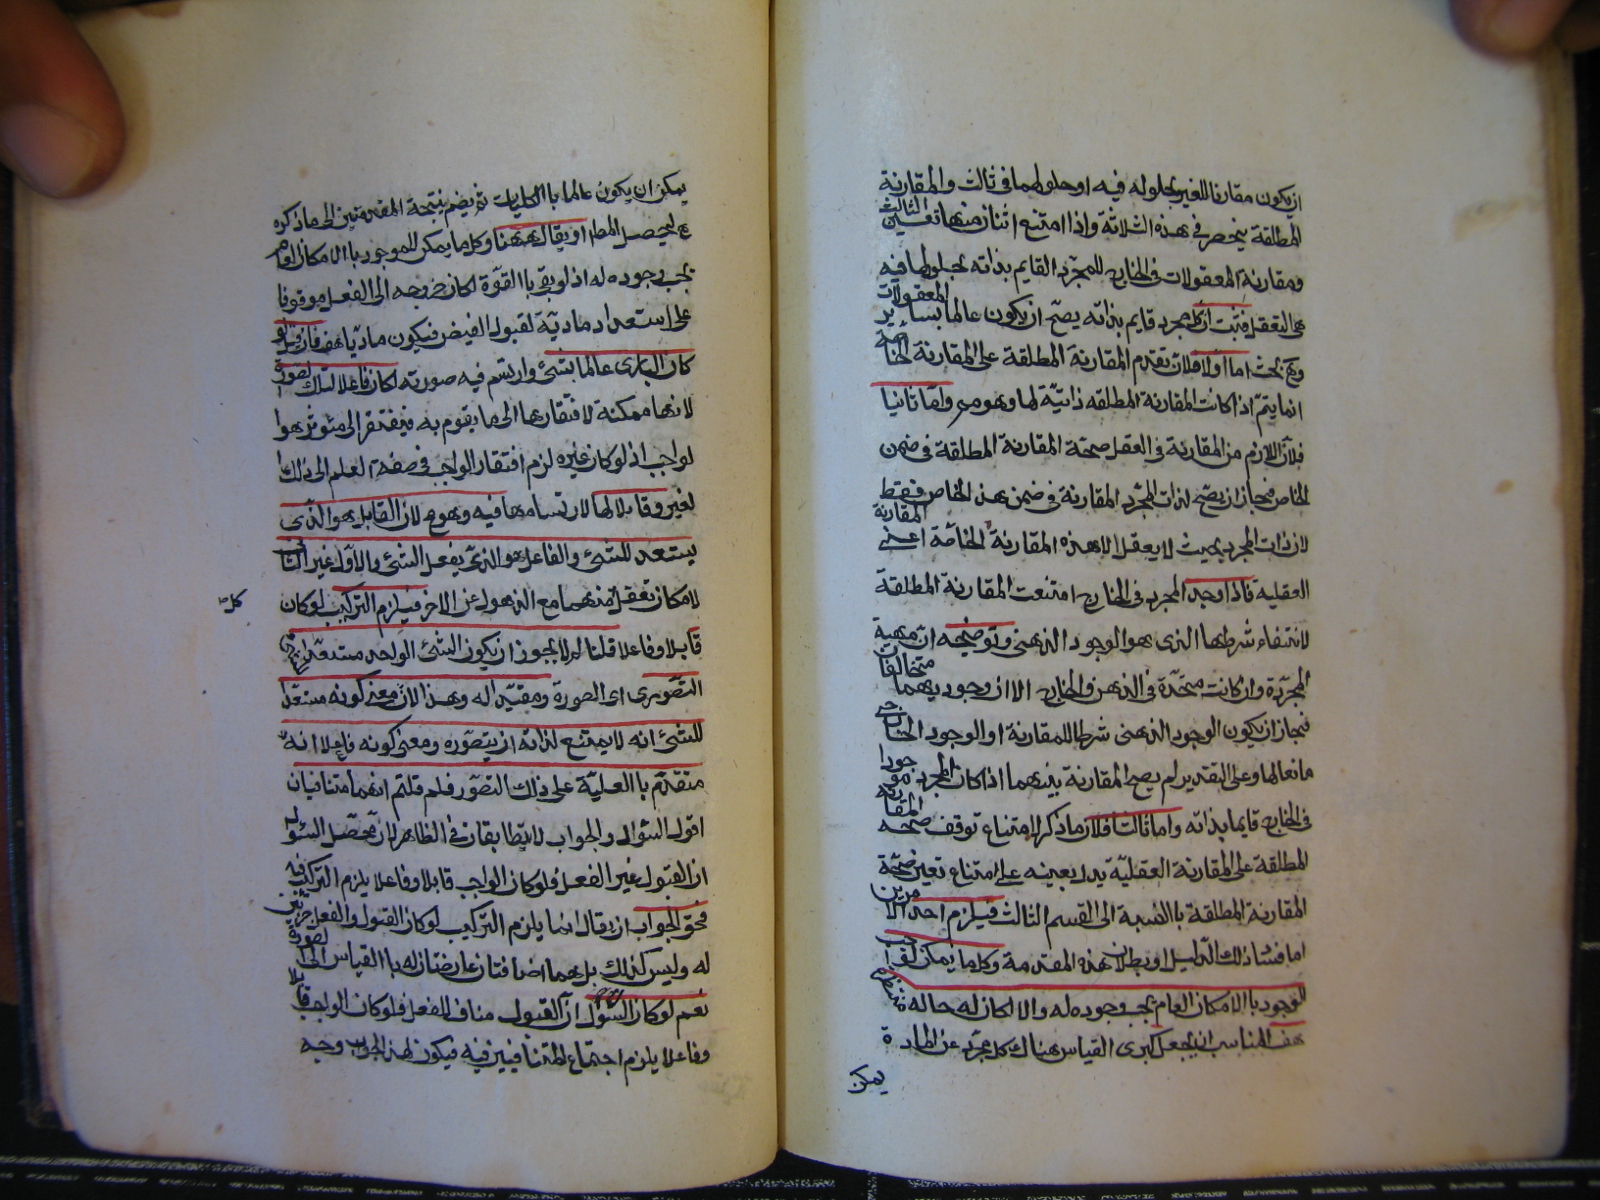 ان يكون مقارنا للغير بحلوله فيه او حلولهما في ثالث والمقارنة
المطلقة ينحصر في هذه الثلاثة واذا امتنع اثنان منها تعين الثالث
ومقارنة المعقولات في الخارج للمجرد القايم بذاته بحلولها فيه
هى التعقل فثبت ان كل مجرد قايم بذاته يصح ان يكون عالما بساير المعقولات
وهو بحث اما اولا فلان تقدم المقارنة المطلقة على المقارنة الخاصة
انما يتم اذا كانت المقارنة المطلقه ذاتية لها وهو مم واما ثانيا
فلان اللازم من المقارنة في العقل صحة المقارنة المطلقة في ضمن
الخاص فجاز ان يصح لذات المجرد المقارنة في ضمن هذا الخاص فقط
لان ذات المجرد بحيث لا يعقل الا هذه المقارنة الخاصة اعني المقارنة
العقليه فاذا وجد المجرد في الخارج امتنعت المقارنة المطلقة
لانتفاء شرطها الذى هو الوجود الذهنى وتوضيحه ان مهية
المجردة وان كانت متحدة في الذهن والخارج الا ان وجوديهما متخالفان
فجاز ان يكون الوجود الذهنى شرطا للمقارنة او الوجود الخارجى
مانعا لها وعلى التقديرين لم يصح المقارنة بينهما اذا كان المجرد موجودا
في الخارج قايما بذاته واما ثالثا فلان ما ذكر لامتناع توقف صحة المقارنة
المطلقة على المقارنة العقلية يدل بعينه على امتناع تعين صحة
المقارنة المطلقة بالنسبة الى القسم الثالث فيلزم احد الامرين
اما فساد ذلك الدليل او بطلان هذه المقدمة وكل ما يمكن لواجب
الوجود بالامكان العام يجب وجوده له والا لكان له حالة منتظرة
هف المناسب ان يجعل كبرى القياس هناك كل مجرد عن المادة
يمكن
يمكن ان يكون عالما بالكليات ثم يضم نتيجة المقدمتين الى ما ذكره
ليحصل المط او يقال ههنا وكل ما يمكن للموجود بالامكان العام
يجب وجوده له اذ لو بقى بالقوة لكان خروجه الى الفعل موقوفا
على استعداد مادية لقبول الفيض فيكون ماديا هف فان قيل لو
كان البارى عالما بشئ وارتسم فيه صورته لكان فاعلا لتلك الصورة
لانها ممكنة لافتقارها الى ما يقوم به فيفتقر الى مؤثر هو
لواجب اذ لو كان غيره لزم افتقار الواجب في صفة العلم الى ذلك
لغير وقابلا لها لارتسامها فيه وهو مح لان القابل هو الذى
يستعد للشئ والفاعل هو الذى يفعل الشئ والاول غير الثانى
لامكان تعقل كل منهما مع الذهول عن الاخر فيلزم التركيب لو كان
قابلا وفاعلا قلنا لم لا يجوز ان يكون الشئ الواحد مستعدا
التصورى اى الصورة ومفيدا له وهذا لان معنى كونه مستعدا
للشئ انه لا يمتنع لذاته ان يتصوره ومعنى كونه فاعلا انه
متقدم بالعلية على ذلك التصور فلم قلتم انهما متنافيان
اقول السؤال والجواب لا يتطابقان في الظاهر لان محصل السؤال
ان القبول غير الفعل فلو كان الواجب قابلا وفاعلا يلزم التركب فيه
فحق الجواب ان يقال انما يلزم التركيب لو كان القبول والفعل جزئين
له وليس كذلك بل هما اضافتان عارضتان له بالقياس الى الصورة
نعم لو كان السؤال ان القبول مناف للفعل فلو كان الواجب قابلا
وفاعلا يلزم اجتماع المتنافيين فيه فيكون لهذا الجواب وجه